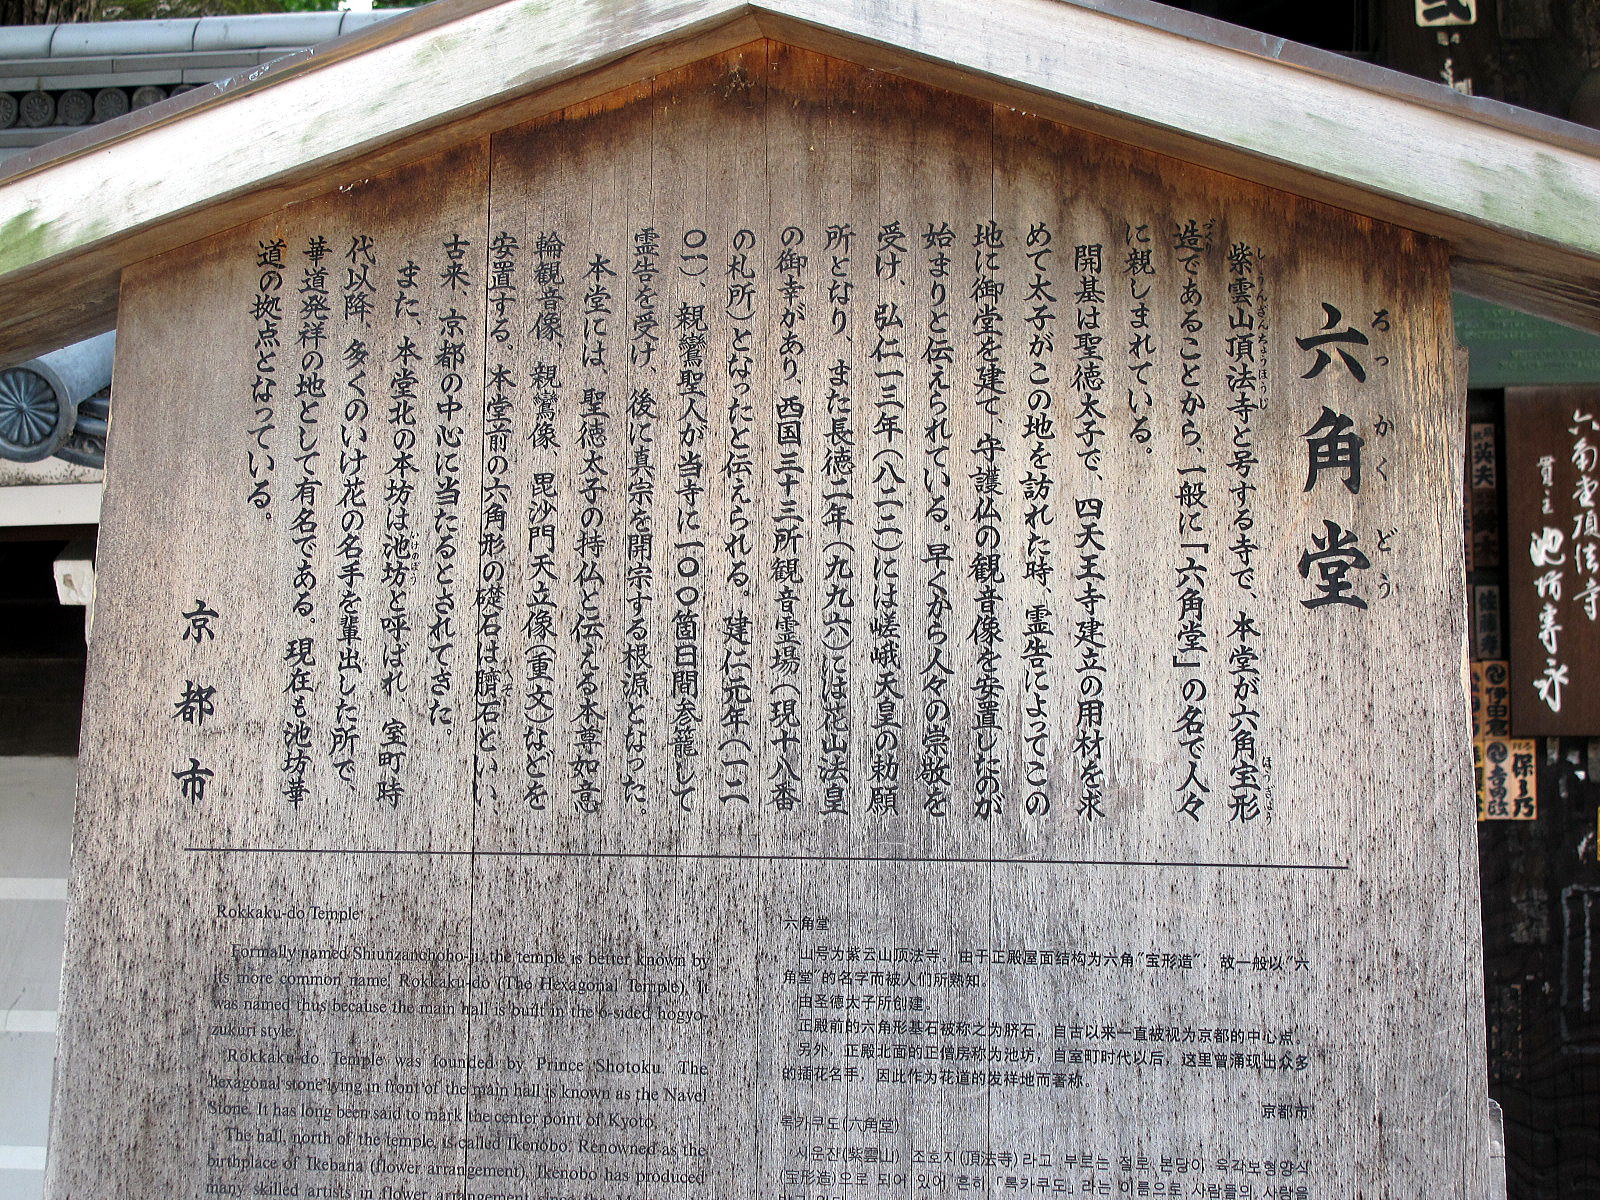 六角堂
ろっかくどう
紫雲山頂法寺と号する寺で、本堂が六角宝形
しうんざんちょうほうじ
ほうぎょう
造であることから、一般に「六角堂」の名で人々
づくり
に親しまれている。
開基は聖徳太子で、四天王寺建立の用材を求
めて太子がこの地を訪れた時、霊告によってこの
地に御堂を建て、守護仏の観音像を安置したのが
始まりと伝えられている。早くから人々の崇敬を
受け、弘仁一三年（八二二）には嵯峨天皇の勅願
所となり、また長徳二年（九九六）には花山法皇
の御幸があり、西国三十三所観音霊場（現十八番
の札所）となったと伝えられる。建仁元年（一二
〇一）、親鸞聖人が当寺に一〇〇箇日間参籠して
霊告を受け、後に真宗を開宗する根源となった。
本堂には、聖徳太子の持仏と伝える本尊如意
輪観音像、親鸞像、毘沙門天立像（重文）などを
安置する。本堂前の六角形の礎石は臍石といい、
へそ
古来、京都の中心に当たるとされてきた。
また、本堂北の本坊は池坊と呼ばれ、室町時
いけのぼう
代以降、多くのいけ花の名手を輩出した所で、
華道発祥の地として有名である。現在も池坊華
道の拠点となっている。
京都市
Rokkaku-do Temple
Formally named Shiunzanchoho-ji, the temple is better known by
its more common name, Rokkaku-do (The Hexagonal Temple). It
was named thus because the main hall is built in the 6-sided hogyo-
zukuri style.
Rokkaku-do Temple was founded by Prince Shotoku. The
hexagonal stone lying in front of the main hall is known as the Navel
Stone. It has long been said to mark the center point of Kyoto.
The hall, north of the temple, is called Ikenobo. Renowned as the
birthplace of Ikebana (flower arrangement), Ikenobo has produced
many skilled artists in flower arrangement since the
六角堂
山号为紫云山顶法寺。由于正殿屋面结构为六角"宝形造"，故一般以"六
角堂"的名字而被人们所熟知。
由圣德太子所创建。
正殿前的六角形基石被称之为脐石，自古以来一直被视为京都的中心点。
另外，正殿北面的正僧房称为池坊，自室町时代以后，这里曾涌现出众多
的插花名手，因此作为花道的发祥地而著称。
京都市
록카쿠도(六角堂)
시운잔(紫雲山) 조호지(頂法寺)라고 부르는 절로 본당이 육각보형양식
(宝形造)으로 되어 있어 흔히 「록카쿠도」라는 이름으로 사람들의 사랑을
六角堂頂法寺
貫主 池坊専永
佐藤
伊田
保乃